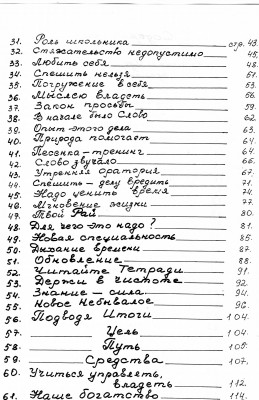 31. Роль школьника стр. 43.
32. Стяжательство недопустимо 45.
33. Любить себя 48.
34. Спешить нельзя 51.
35. Погружение в себя 53.
36. Мыслею владеть 56.
37. Закон просьбы 59.
38. В начале было Слово 62.
39. Опыт этого дела 63.
40. Природа помогает 64.
41. Песенка-тренинг 64.
42. Слово звучало 66.
43. Утренняя оратория 67.
44. Спешить – делу вредить 71.
45. Надо ценить время 74.
46. Мгновение жизни 77.
47. Твой Рай 80.
48. Для чего это надо? 81.
49. Новая специальность 85.
50. Дыхание времени 87.
51. Обновление 88.
52. Читайте Тетради 91.
53. Держи в чистоте 92.
54. Знание – сила 94.
55. Новое Небывалое 96.
56. Подводя Итоги 104.
57. Цель 104.
58. Путь 105.
59. Средства 107.
60. Учиться управлять,
владеть 112.
61. Наше богатство 114.